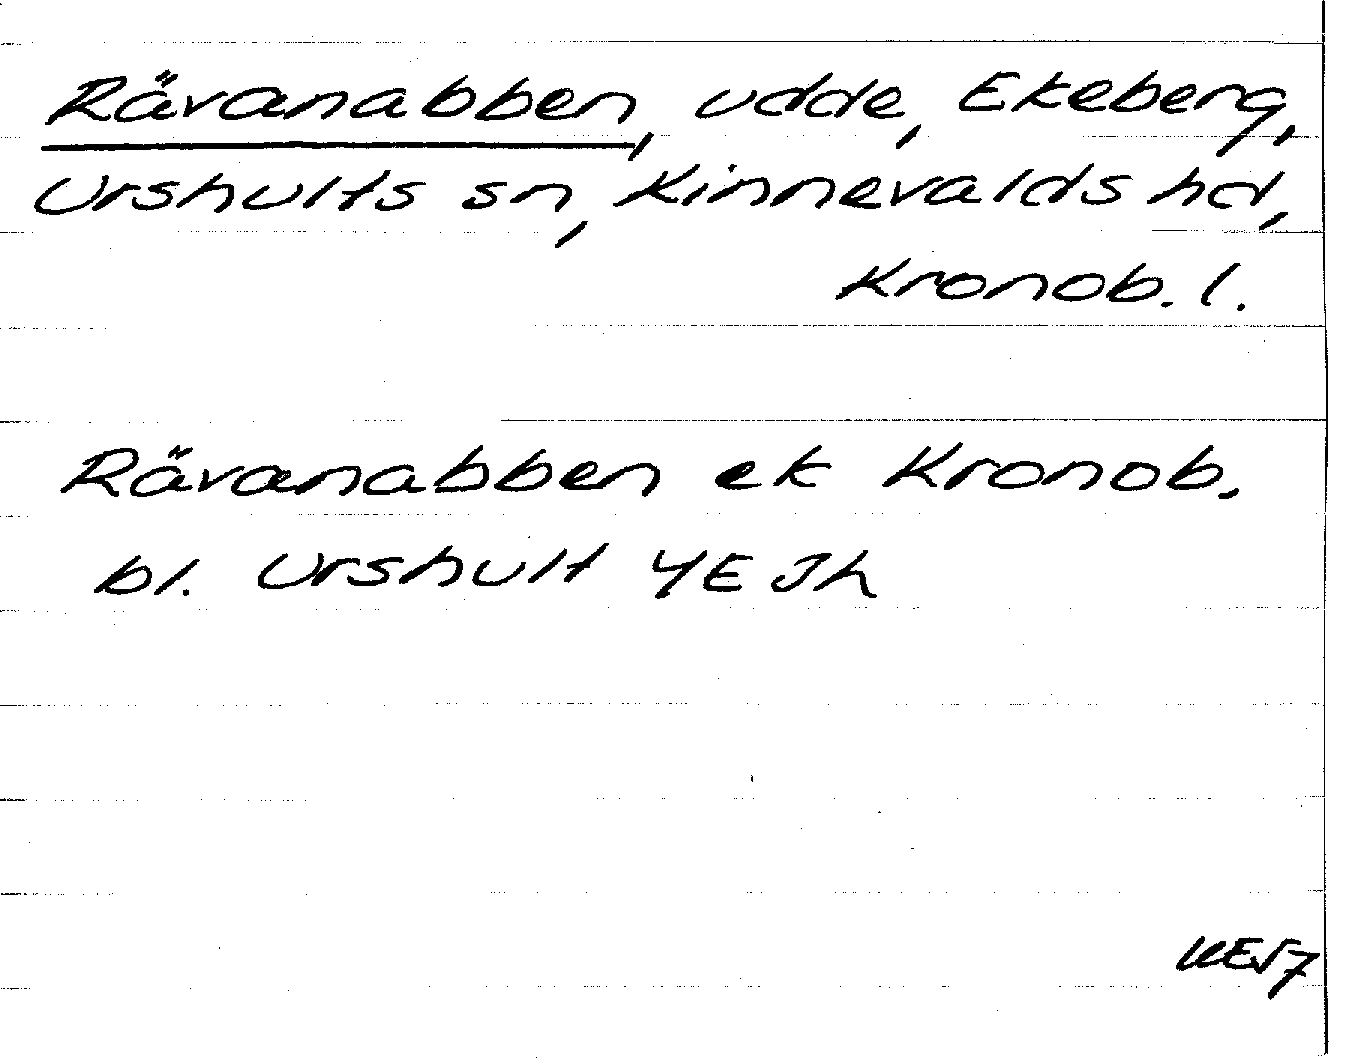 Rävanabben, udde, Ekeberg,
Urshults sn, Kinnevalds hd,
Kronob. l.
Rävanabben ek Kronob.
bl. Urshult 4E Jh